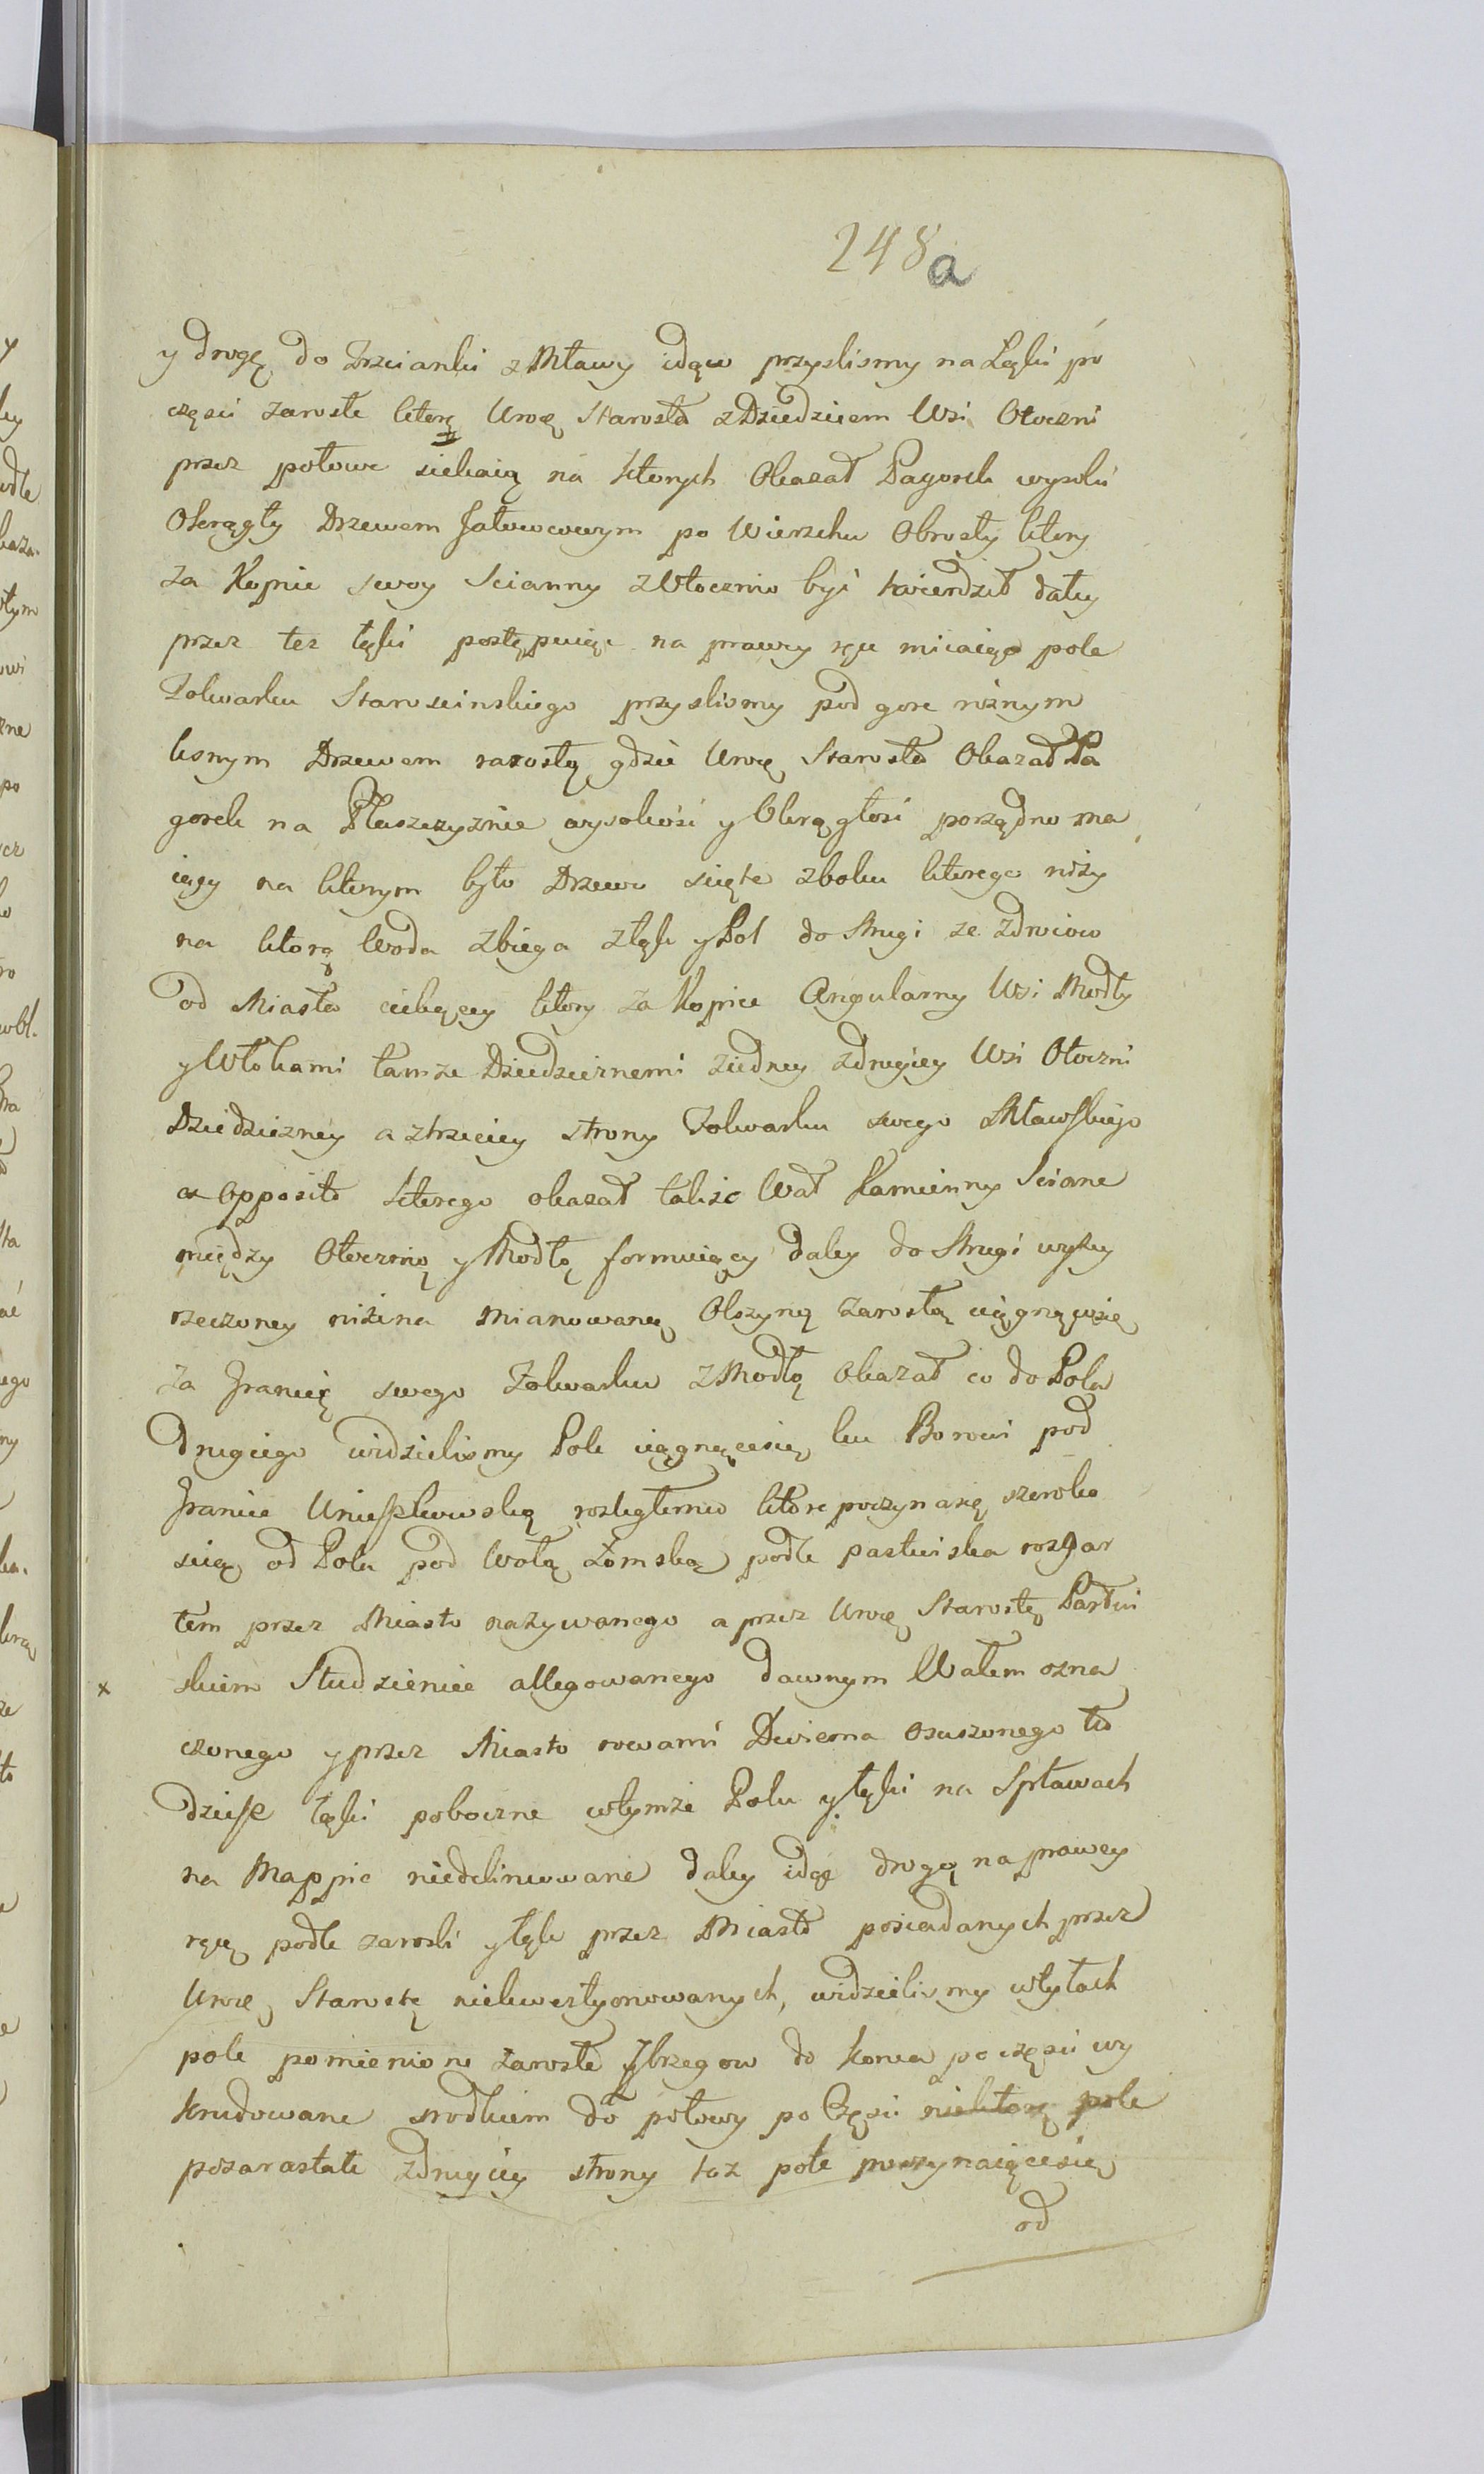 248a
y drogę do Trzcianki z Mławy idąc przyslismy na Łąki po
częsci zarosłe ktorę Uroę Starosta z Dziedzicem Wsi Otoczni
przez połowe siekaią na ktorych Okazał Pagorek wysoki
Okrągły Drzewem Jałowcowym po Wierzchu Obrosły ktory
za Kopiec swoy Scianny z Otocznio być twierdził daley
przez też łąki postępuiąc na prawey ręce miiaiąc pole
Folwarku Staroscinskiego przyslismy pod gore roznym
lesnym Drzewem zarosłą gdzie Uroę Starosta Okazał Pa
gorek na Płaszczyznie wysokosi y Okrągłosi porządno ma
iący na ktorym było Drzewo scięte zboku ktorego niży
na ktorą Woda zbiega z łąk y Pol do Strugi ze Zdroiow
od Miasta ciekącey ktory za Kopiec Angularny Wsi Modły
y Włokami tamże Dziedzicznemi ziedney z drugiey Wsi Otoczni
Dziedziczney a z trzeciey strony Folwarku swego Mławskiego
ex opposito ktorego okazał takze Wał Kamienny Sciane
między Otocznią y Modłą formuiący daley do Strugi wyżey
rzeczoney nizina mianowaną Olszyną zarosłą ciągnącąsię
za Granicę swego Folwarku z Modłą Okazał co do Pola
Drugiego widzielismy Pole ciągnącesię ku Borowi pod
Granice Uniszkowską rozległemu ktore poczynasię szeroko
scią od Pola pod Wolą Łomską podle pastwiska rozgar
tem przez Miasto nazywanego a przez Uroę Starostę Pardwi
x skiem Studzience allegowanego dawnym Wałem ozna
czonego y przez Miasto rowami Dwiema osuszonego tu
dziesz łąki poboczne wtymże Polu y łąki na Spławach
na Mappie niedelineowane daley idąc drogą na prawey
ręcę podle zarosli y łąk przez Miasto posiadanych przez
Uroę Starostę niekwestyonowanych, widzielismy w tytach
pole pomienione zarosłe y brzegow do konca po częsci wy
krudowane srodkiem do połowy po Części pole
pozarastałe z drugiey strony toz pole poczynaiącesię
od